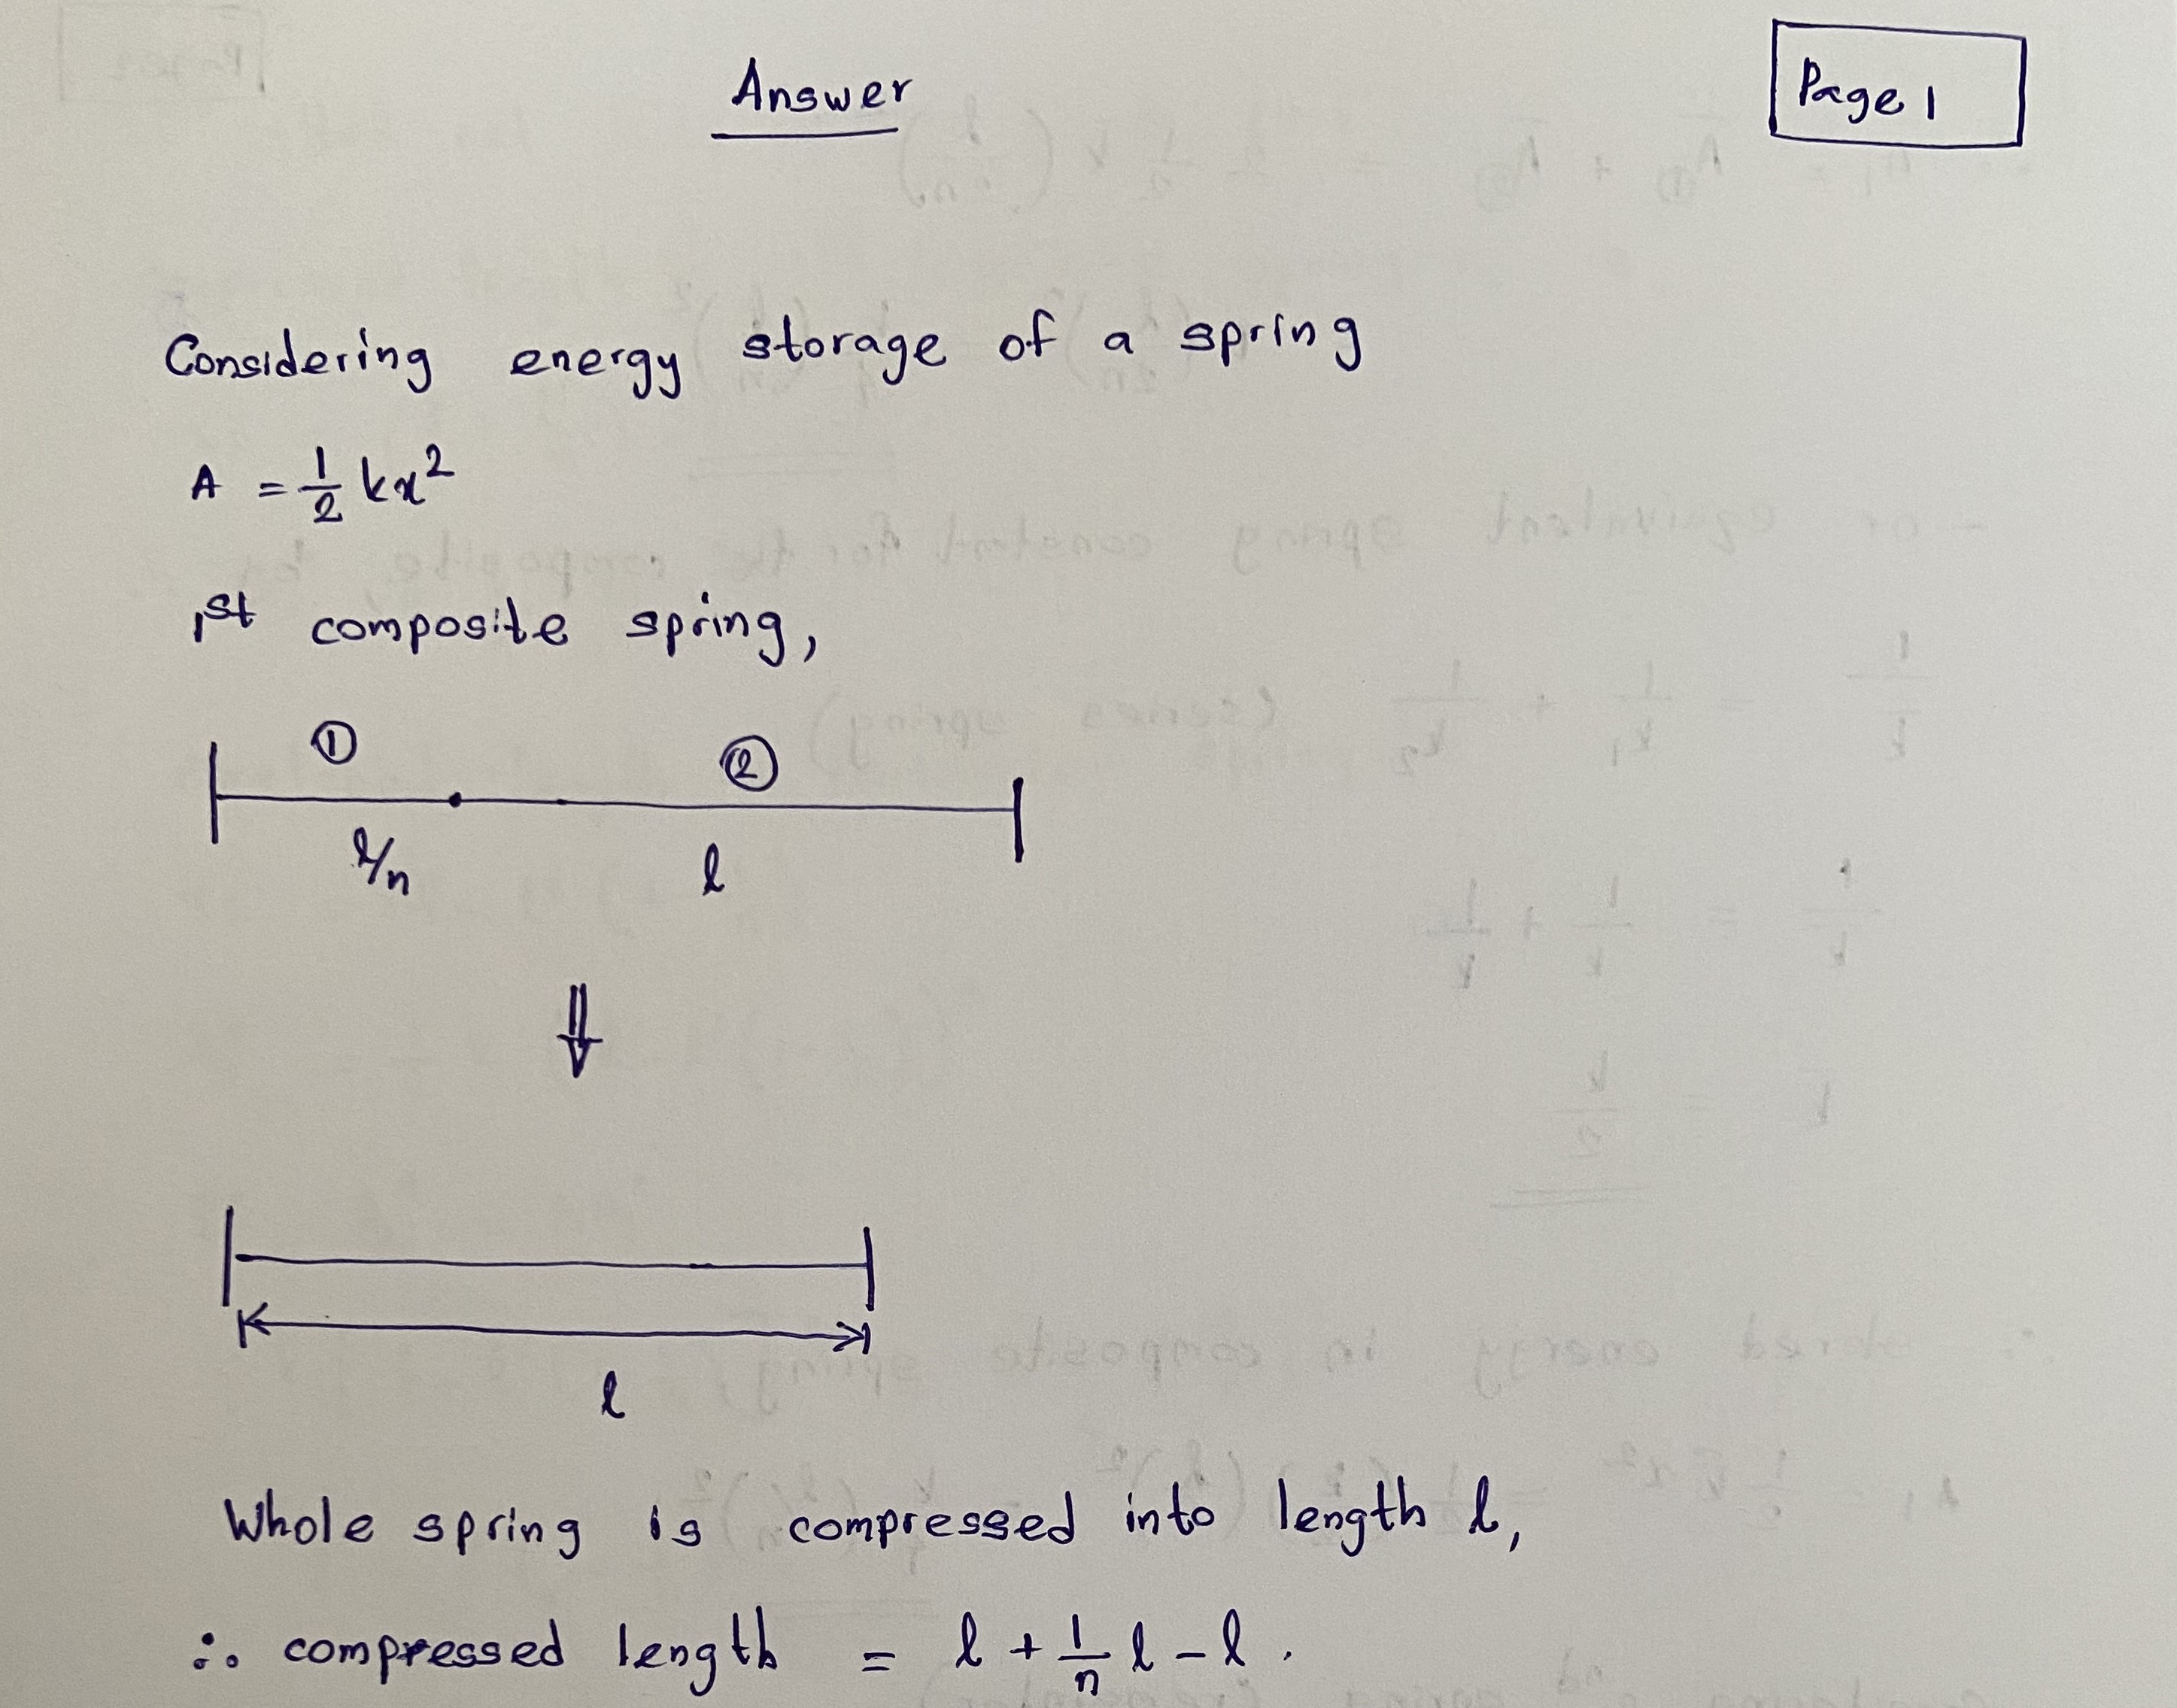 Answer
Page 1
Considering energy storage of a spring
A = 1/2 kx²
1st composite spring,
① ②
l/n l
l
Whole spring is compressed into length l,
∴ compressed length = l + 1/n l - l.